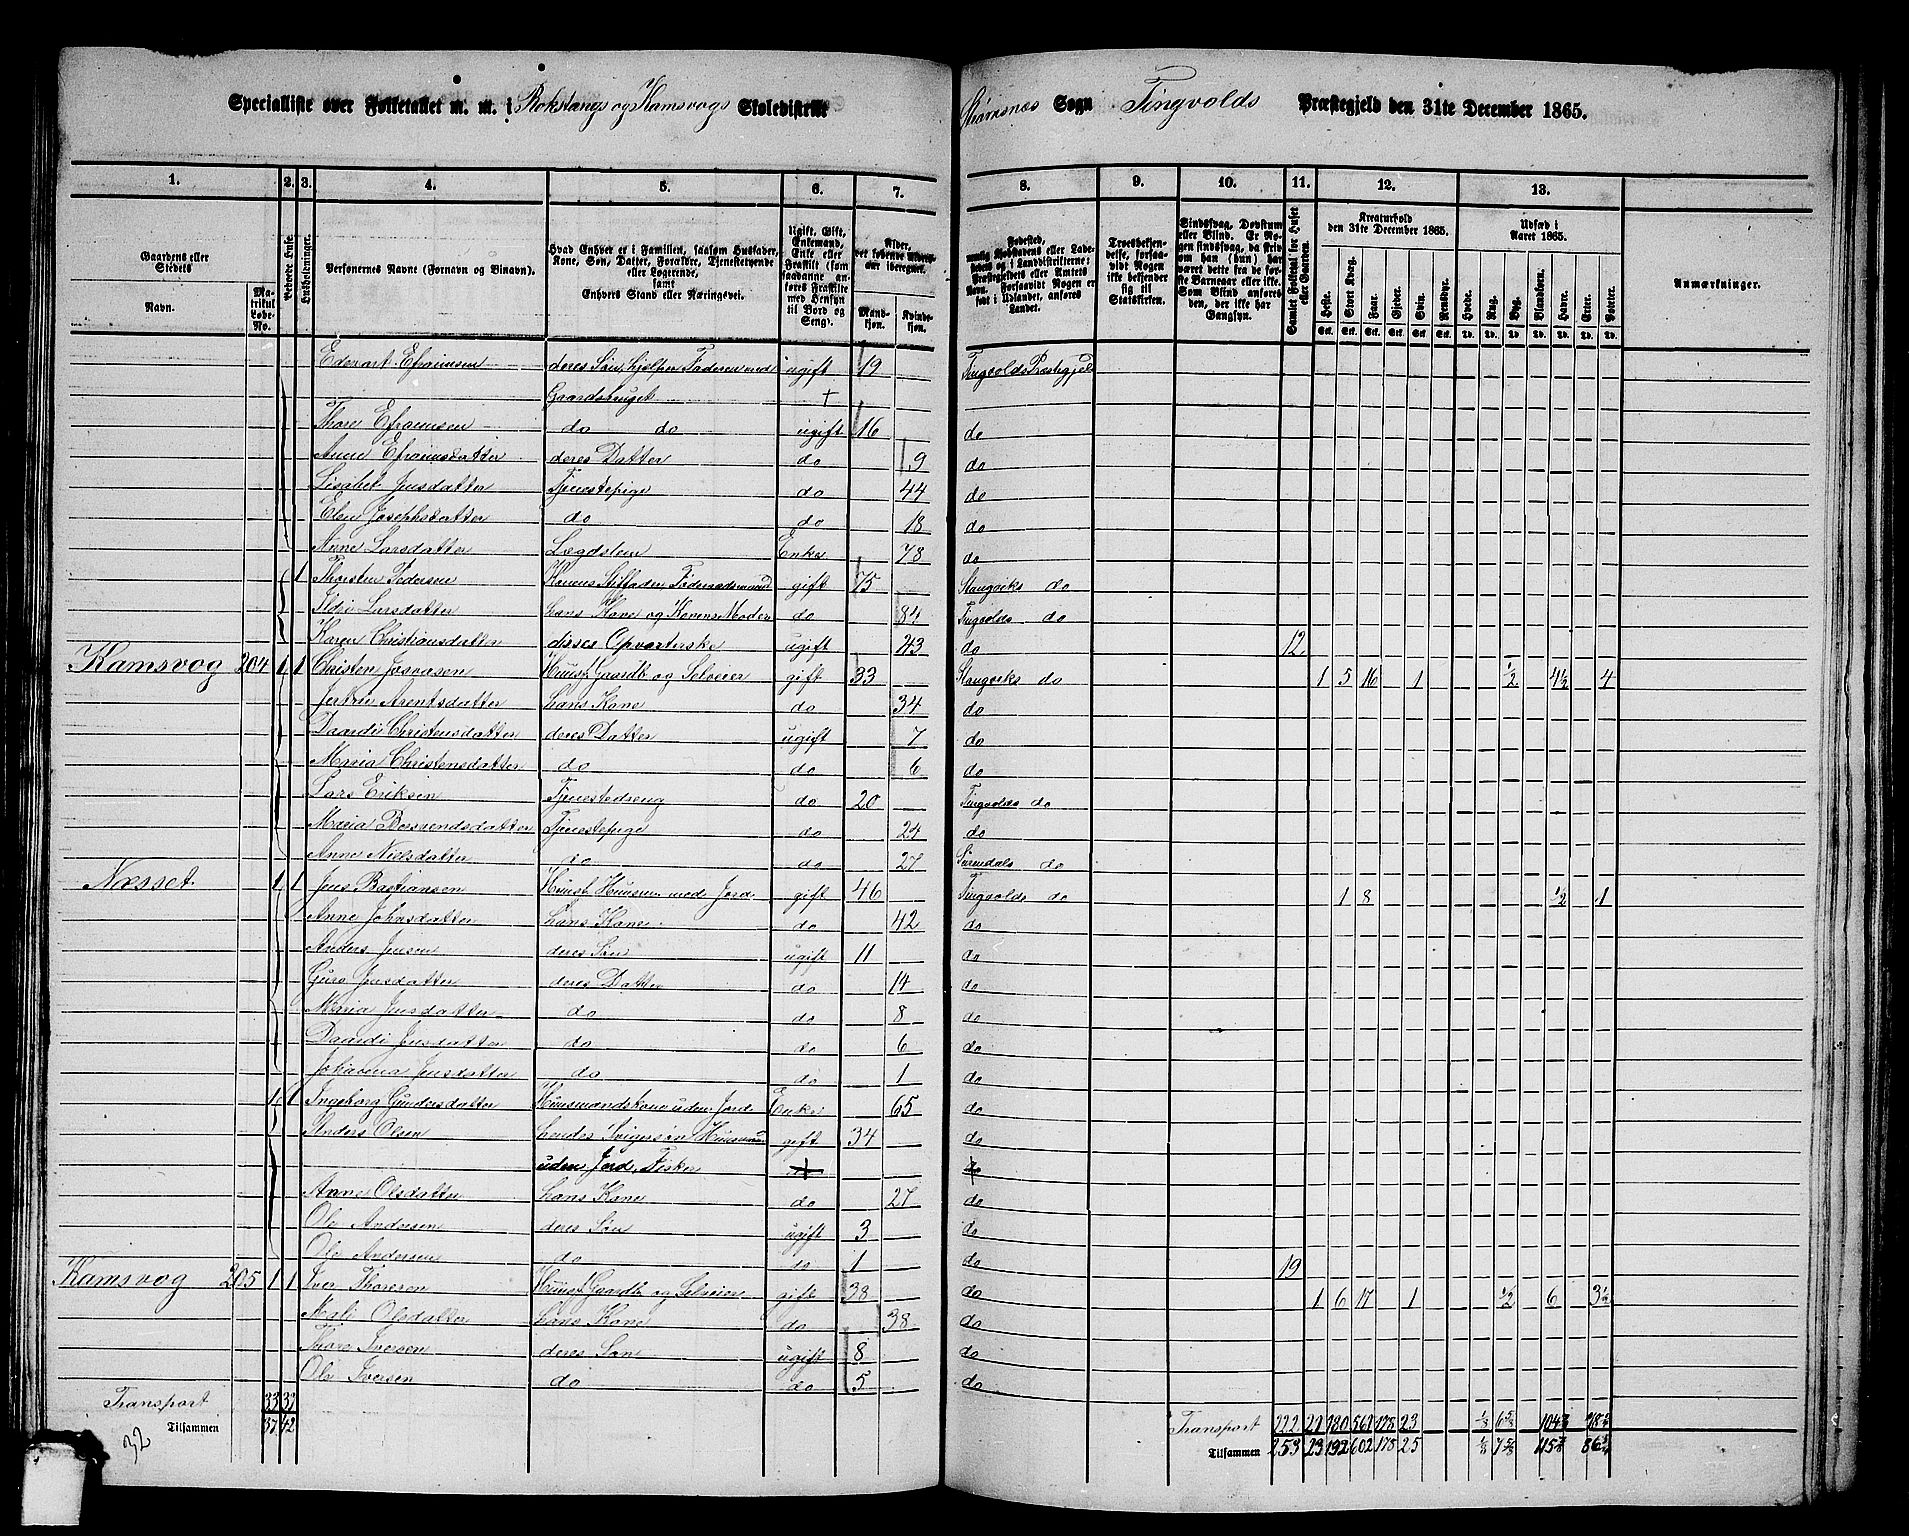 Specialliste over Folketallet m. m. i Rokstangs og Kamsvogs Skoledistrikt Sogn Tingvolds Præstegjeld den 31te December 1865.
1. 2. 3. 4. 5. 6. 7. 8. 9. 10. 11. 12. 13.
Gaardens eller Stedets
Navn. Matrikul Løbe-No.
Beboede Huse.
Husholdninger.
Personernes Navne (Fornavn og Binavn).
Hvad Enhver er i Familien, saasom Husfader, Kone, Søn, Datter, Forældre, Tjenestetyende eller Logerende, samt Enhvers Stand eller Næringsvei.
Ugift, Gift, Enkemand, Enke eller Fraskilt
Alder, det løbende Alders-aar iberegnet.
Mandkjøn. Kvindekjøn.
Fødested,
Troesbekjendelse, forsaavidt Nogen ikke bekjender sig til Statskirken.
Sindssvag, Døvstum eller Blind.
Samlet Folketal for Huset eller Gaarden.
Kreaturhold den 31te December 1865.
Heste. Stort Kvæg. Faar. Gjeder. Svin. Rensdyr.
Udsæd i Aaret 1865.
Hvede. Rug. Byg. Blandkorn. Havre. Erter. Poteter.
Anmærkninger.
Edevart Efraimsen deres Søn, hjelper Faderen med ugift 19 Tingvolds Præstegjel
Gaardsbruget +
Thore Efraimsen do do ugift 16 do
Anne Efraimsdatter deres Datter do 9 do
Lisabet Jensdatter Tjenestepige do 44 do
Elen Josephsdatter do do 18 do
Anne Larsdatter Lægdslem Enke 78 do
1 Thorsten Pedersen Konens Stiffader, Føderaadsmand gift 75 Stangviks do
Ildri Larsdatter hans Kone og Konens Moder do 84 Tingvolds do
Karen Christiansdatter disses Opvarterske ugift 43 do 12
Kamsvog 204 1 1 Christen Josvasen Huusf. Gaardb. og Selveier gift 33 Stangviks do 1 5 16 1 ½ 4½ 4
Arentsdatter hans Kone do 34 do
Daardi Christensdatter deres Datter ugift 7 do
Maria Christensdatter do do 6 do
Lars Eriksen Tjenestedreng do 20 Tingvolds do
Maria Tjenestepige do 24 do
Anne Nielsdatter do do 27 Surendals do
Næsset 1 1 Jens Bastiansen Huusf. Huusm. med Jord gift 46 Tingvolds do 1 8 ½ 1
Anne Johnsdatter hans Kone do 42 do
Anders Jensen deres Søn ugift 11 do
Guro Jensdatter deres Datter do 14 do
Maria Jensdatter do do 8 do
Daardi Jensdatter do do 6 do
Johanna Jensdatter do do 1 do
1 1 Ingeborg Gundersdatter Huusmandskone uden Jord Enke 65 do
Anders Olsen hendes Svigersøn Huusmand gift 34 do
uden Jord, Fisker + do
Anne Olsdatter hans Kone do 27 do
Ole Andersen deres Søn ugift 3 do
Ole Andersen do do 1 do 19
Kamsvog 205 1 1 Iver Thoresen Huusf. Gaardb. og Selveier gift 38 do 1 6 17 1 ½ 6 3½
Mali Olsdatter hans Kone do 38 do
Thore Iversen deres Søn ugift 8 do
Ole Iversen do do 5 do
Transport 33 32 Transport 222 21 180 561 178 23
Tilsammen 37 42 Tilsammen 253 23 192 602 178 25
32